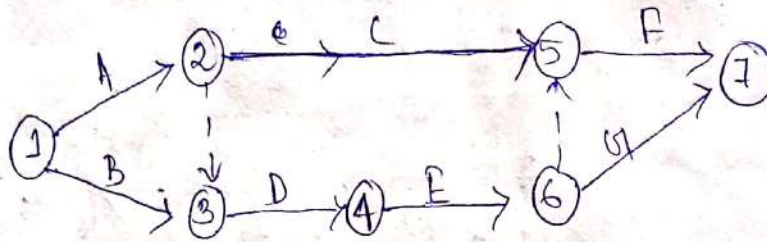 A 2 C 5 F 7
1
B 3 D 4 E 6 G